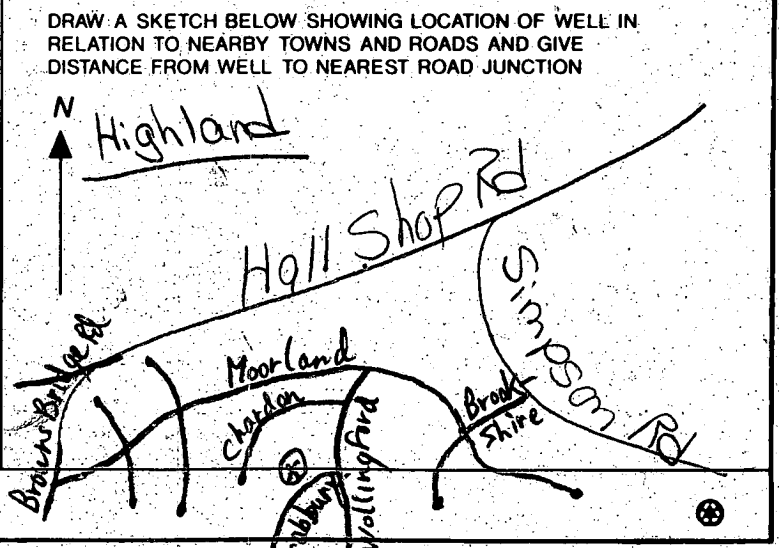 DRAW A SKETCH BELOW SHOWING LOCATION OF WELL IN
RELATION TO NEARBY TOWNS AND ROADS AND GIVE
DISTANCE FROM WELL TO NEAREST ROAD JUNCTION
N
Highland
Hall Shop Rd
Simpson Rd
Browns Bridge Rd
Moorland
Chardon
Brook
Shire
Wollingford